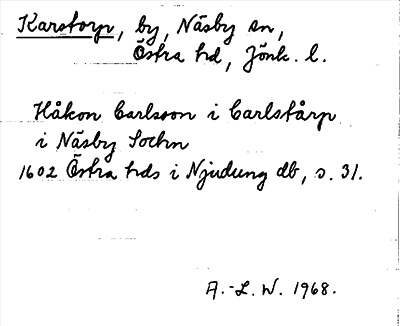 Karstorp, by, Näsby sn,
Östra hd, Jönk. l.
Håkon Carlsson i Carlstårp
i Näsby Sochn
1602 Östra hds i Njudung db, s. 31.
A.-L. W. 1968.